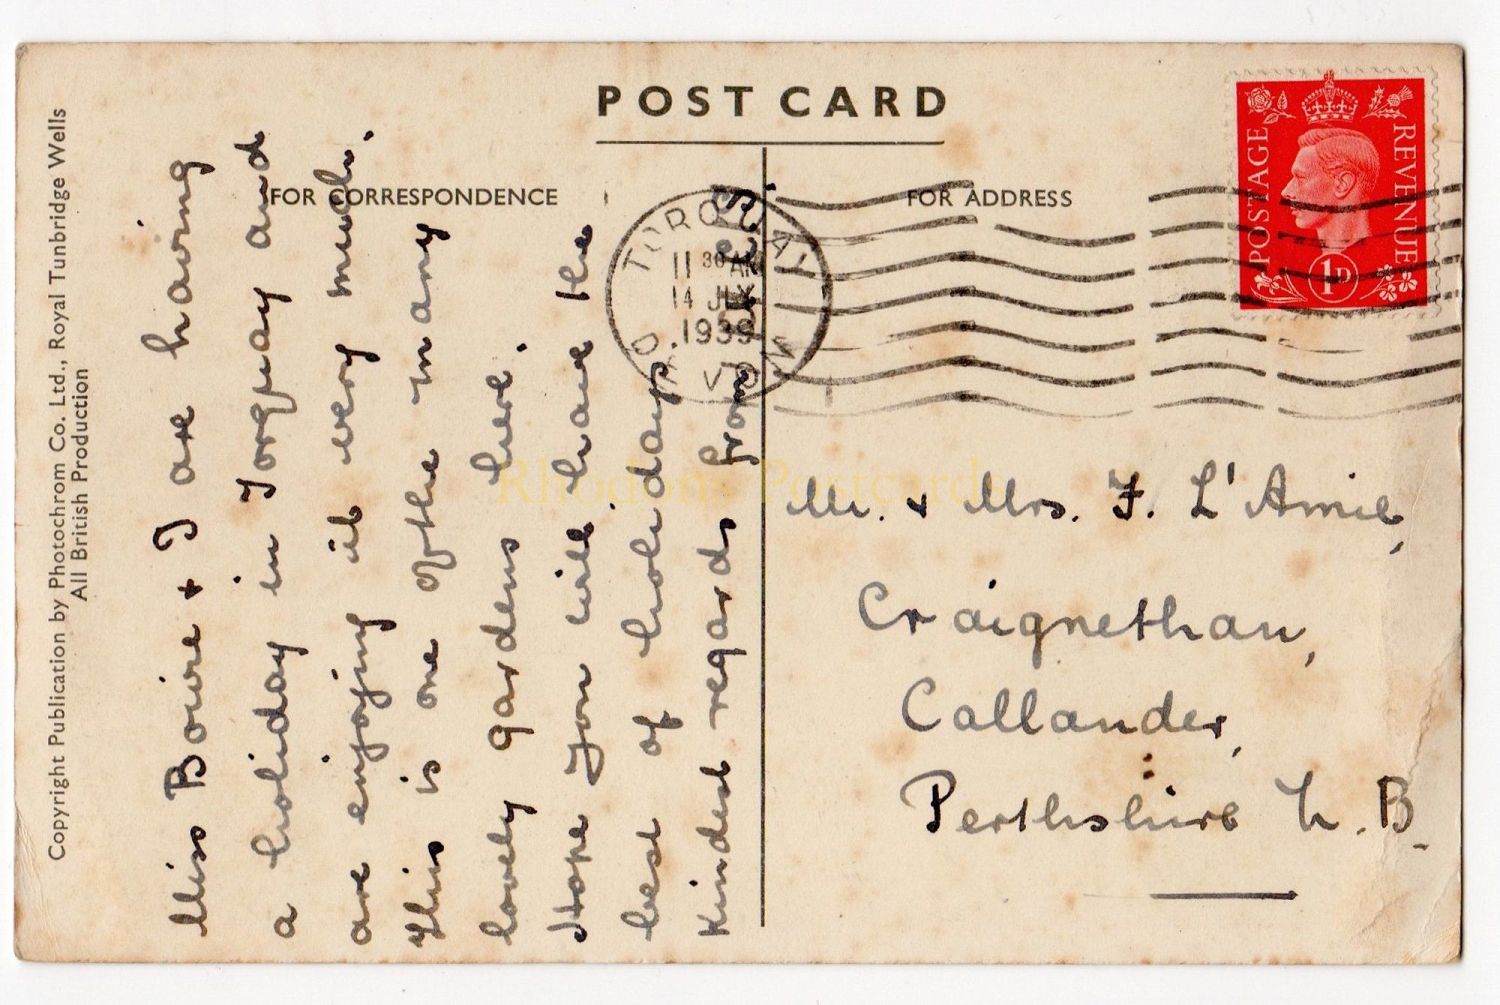 POST CARD
FOR CORRESPONDENCE
FOR ADDRESS
Copyright Publication by Photochrom Co. Ltd., Royal Tunbridge Wells
All British Production
Miss Bowie + I are having
a holiday in Torquay and
are enjoying it very much.
This is one of the many
lovely gardens here.
Hope you will have the
best of holidays.
Kindest regards from
TORQUAY
11 30 AM
14 JLY
1939
DEVON
POSTAGE
REVENUE
1D
Mr. + Mrs. F. L'Amie,
Craignethan,
Callander,
Perthshire N.B.
Rhodons Postcards